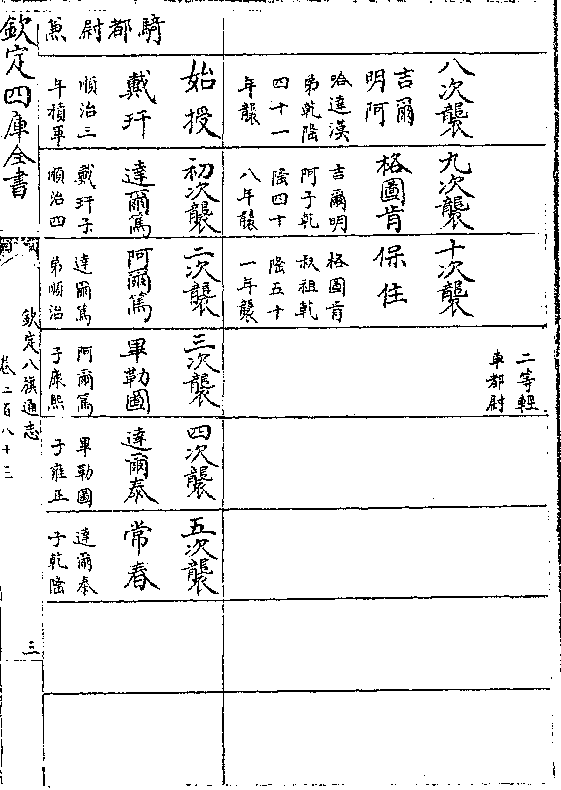 二等輕
車都尉
八次襲
吉爾
明阿
哈達漢
弟乾隆
四十一
年襲
九次襲
格圖肯
吉爾明
阿子乾
隆四十
八年襲
十次襲
保住
格圖肯
叔祖乾
隆五十
一年襲
騎都尉兼
始授
戴玕
順治三
年積軍
初次襲
達爾篤
戴玕子
順治四
二次襲
阿爾篤
達爾篤
弟順治
三次襲
畢勒圖
阿爾篤
子康熙
四次襲
達爾泰
畢勒圖
子雍正
五次襲
常春
達爾泰
子乾隆
欽定四庫全書
欽定八旗通志
卷二百八十三
三